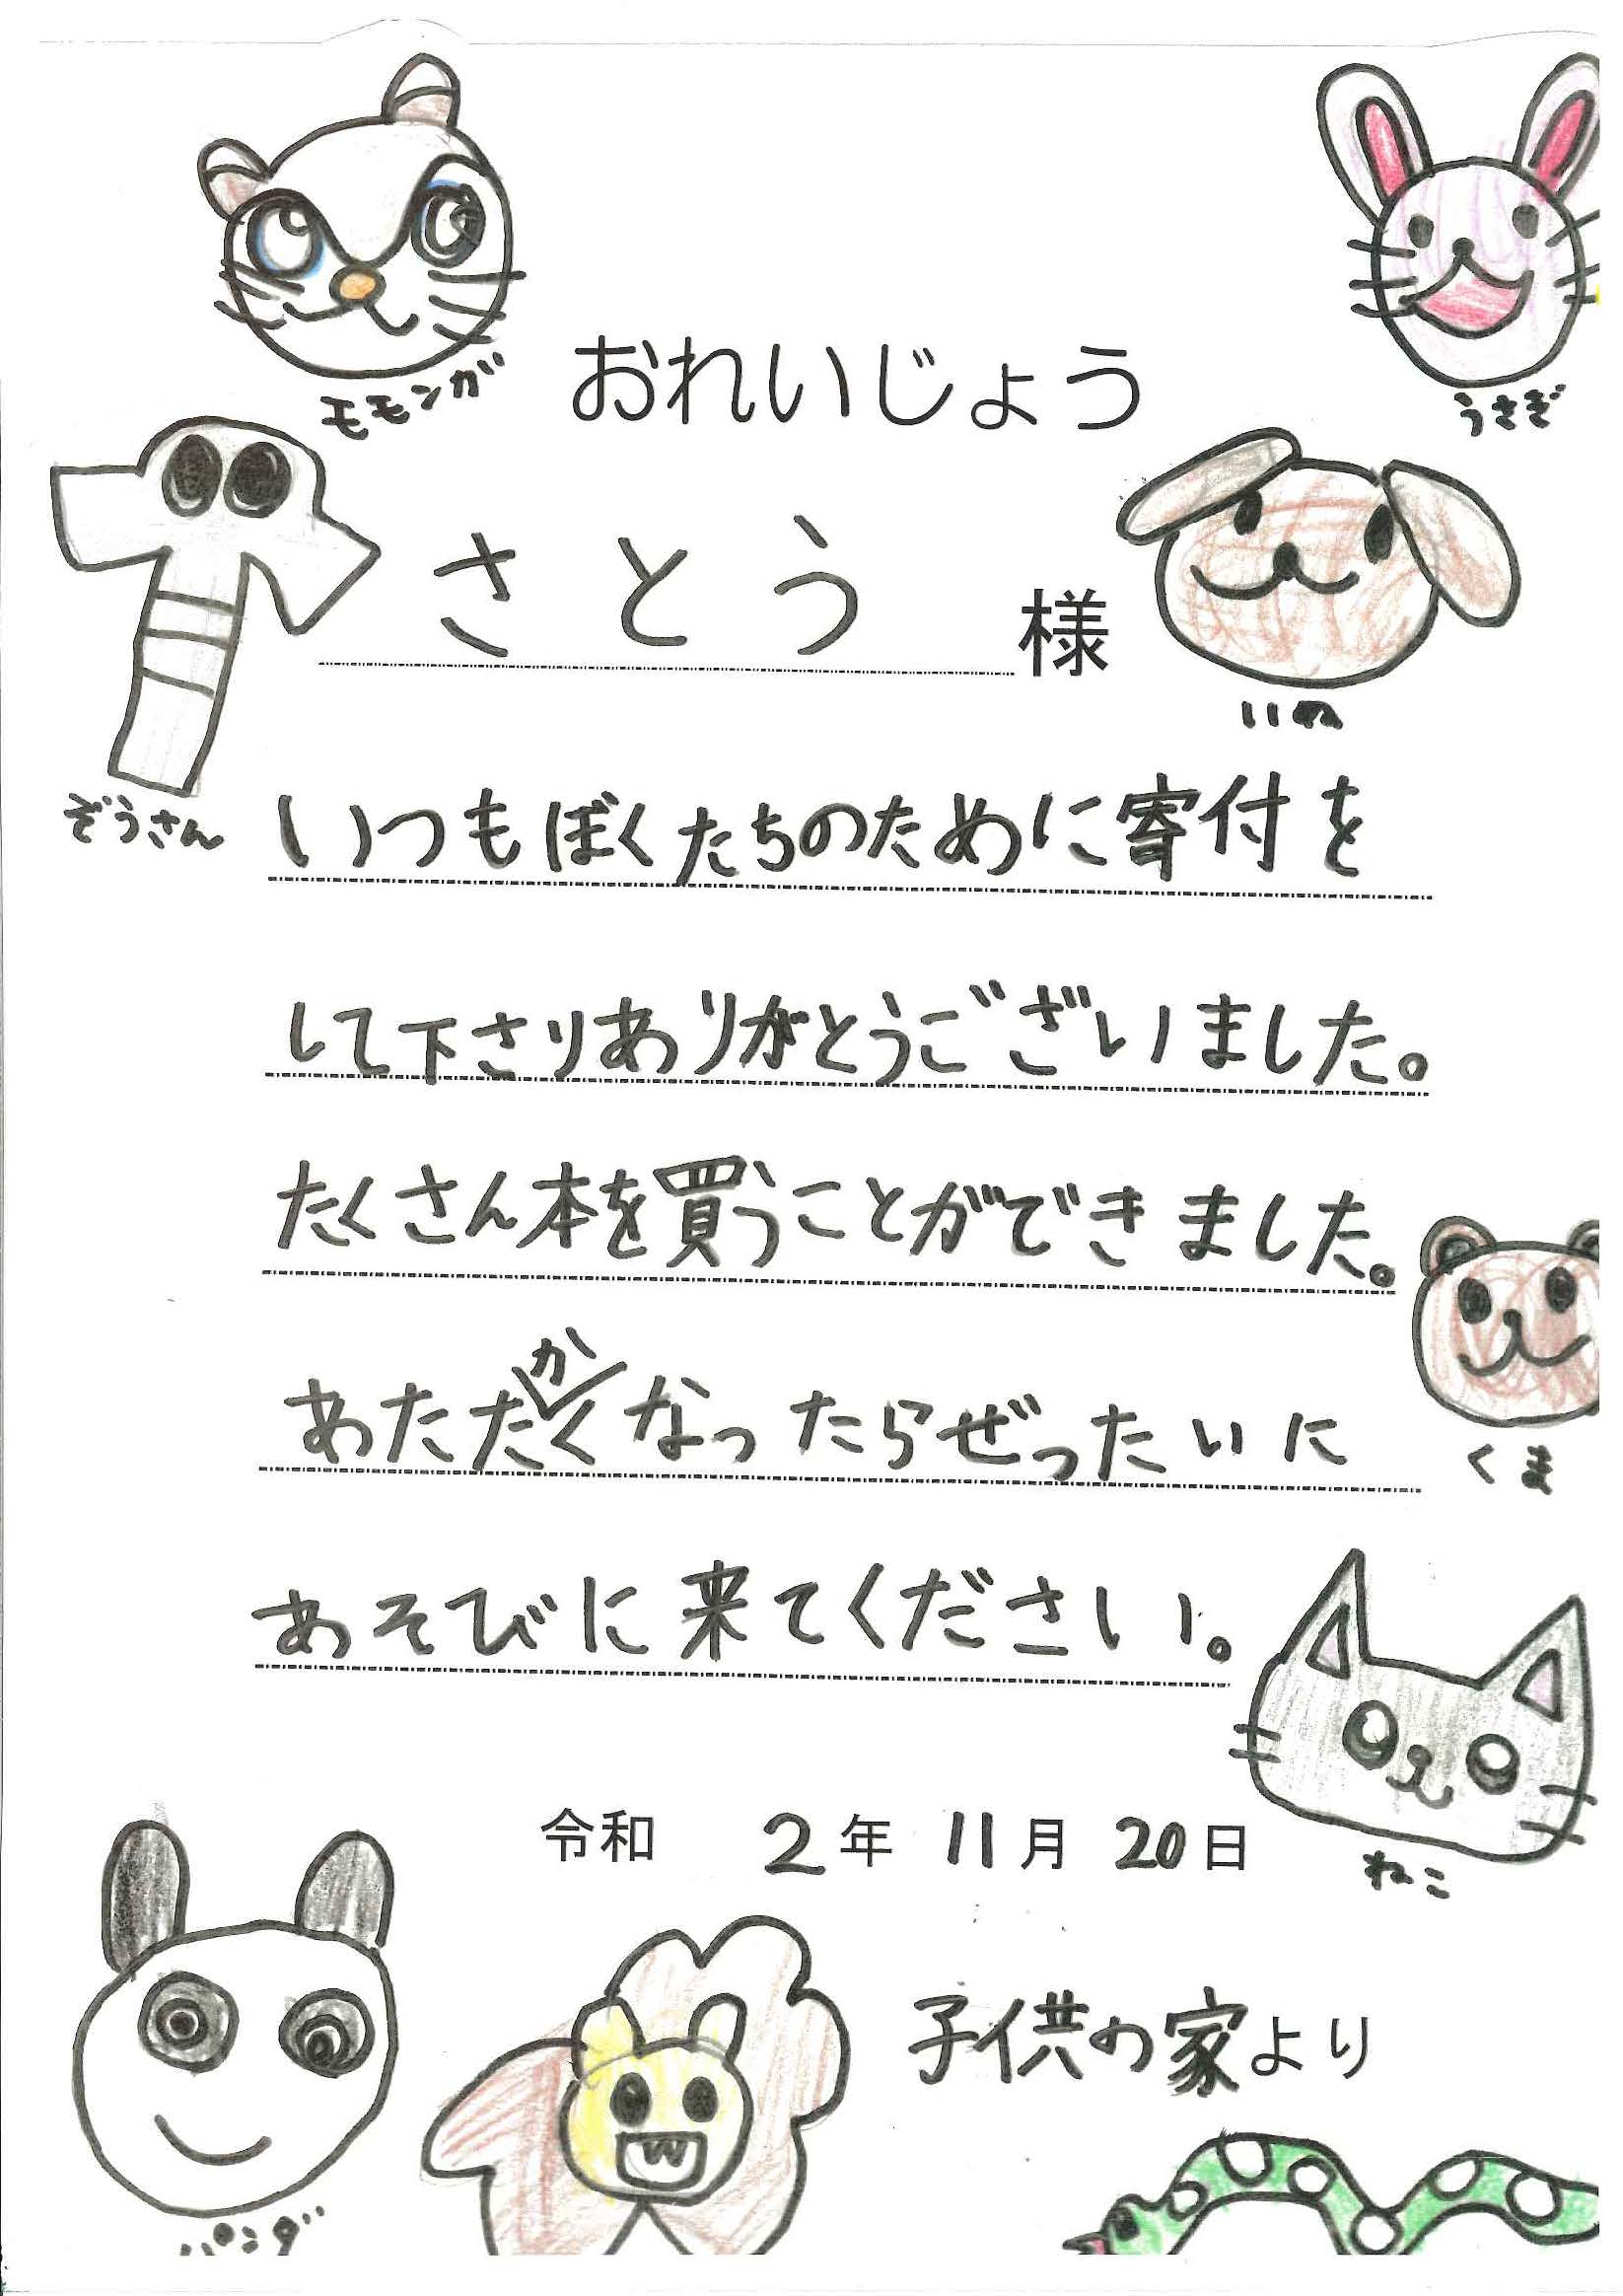 モモンガ
うさぎ
おれいじょう
さとう 様
いぬ
ぞうさん
いつもぼくたちのために寄付を
して下さりありがとうございました。
たくさん本を買うことができました。
あたたかくなったらぜったいに
くま
あそびに来てください。
令和 2年 11月 20日
ねこ
子供の家より
パンダ